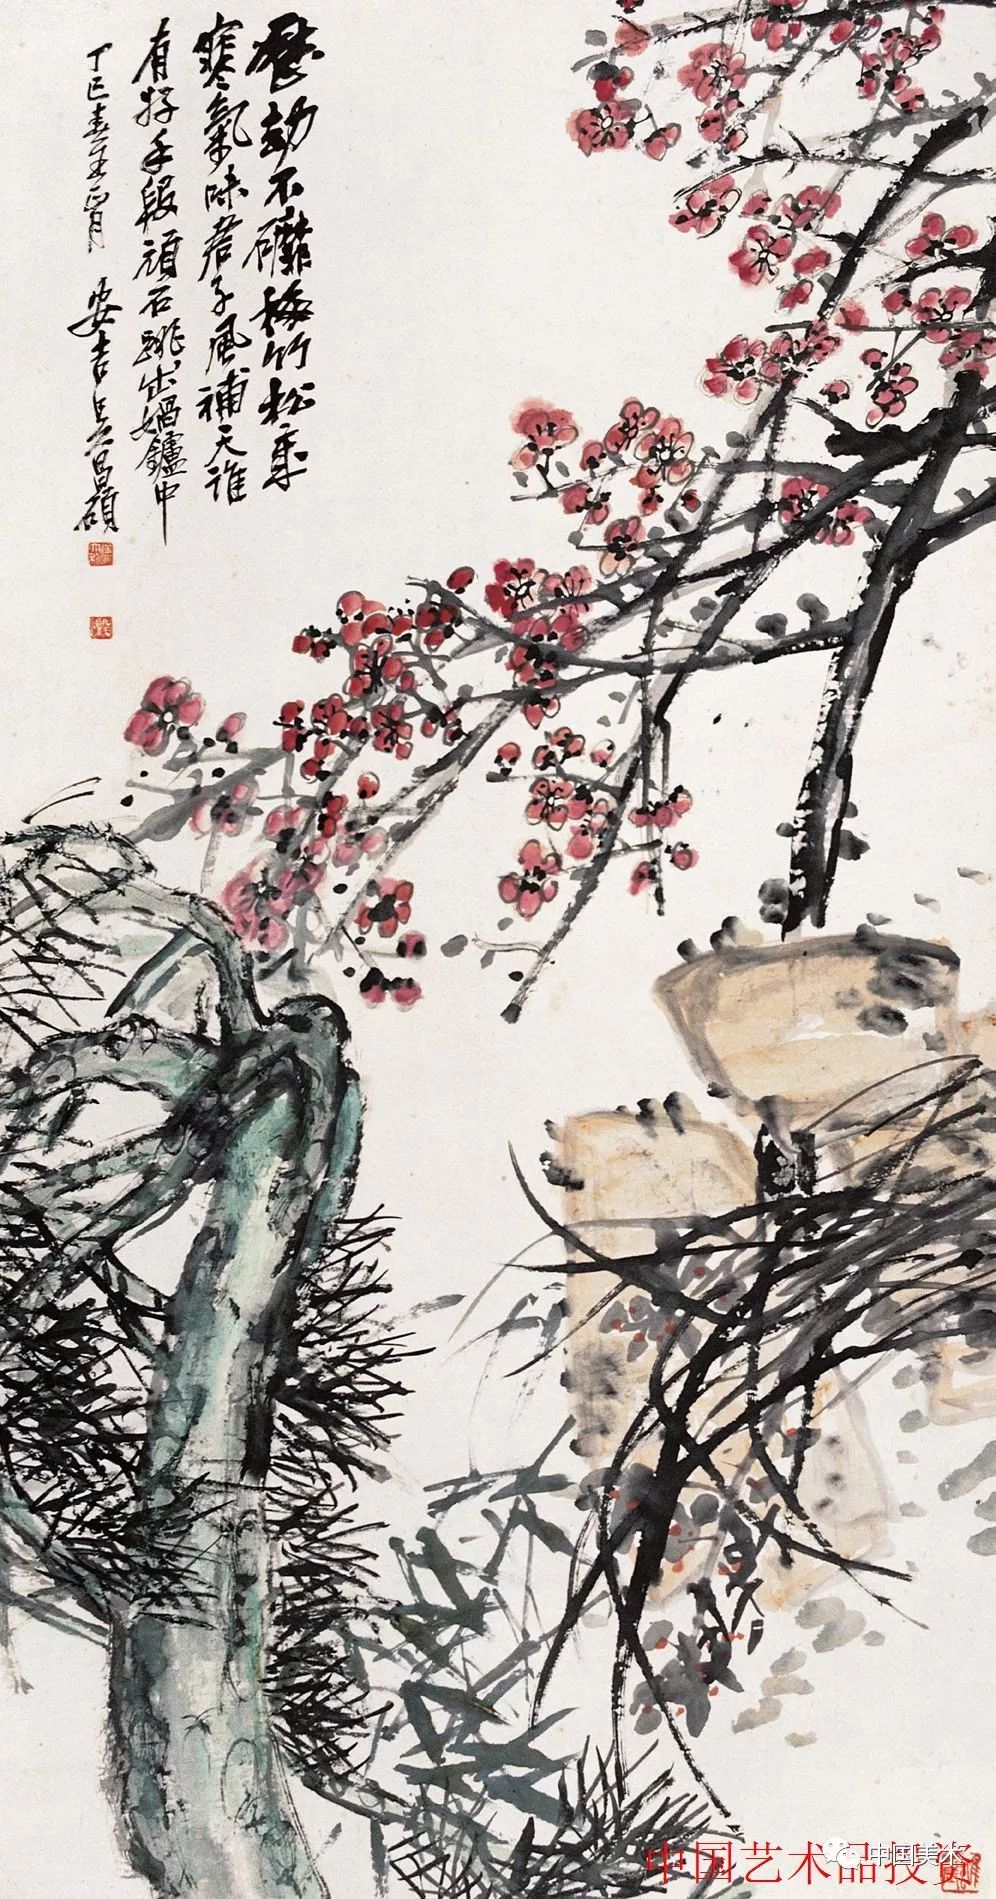 歷劫不磷梅竹松壽
寒氣味君子風補天誰
有好手段頑石跳出媧鑪中
丁巳春王正月
安吉吳昌碩
中国艺术品投资
中国美术